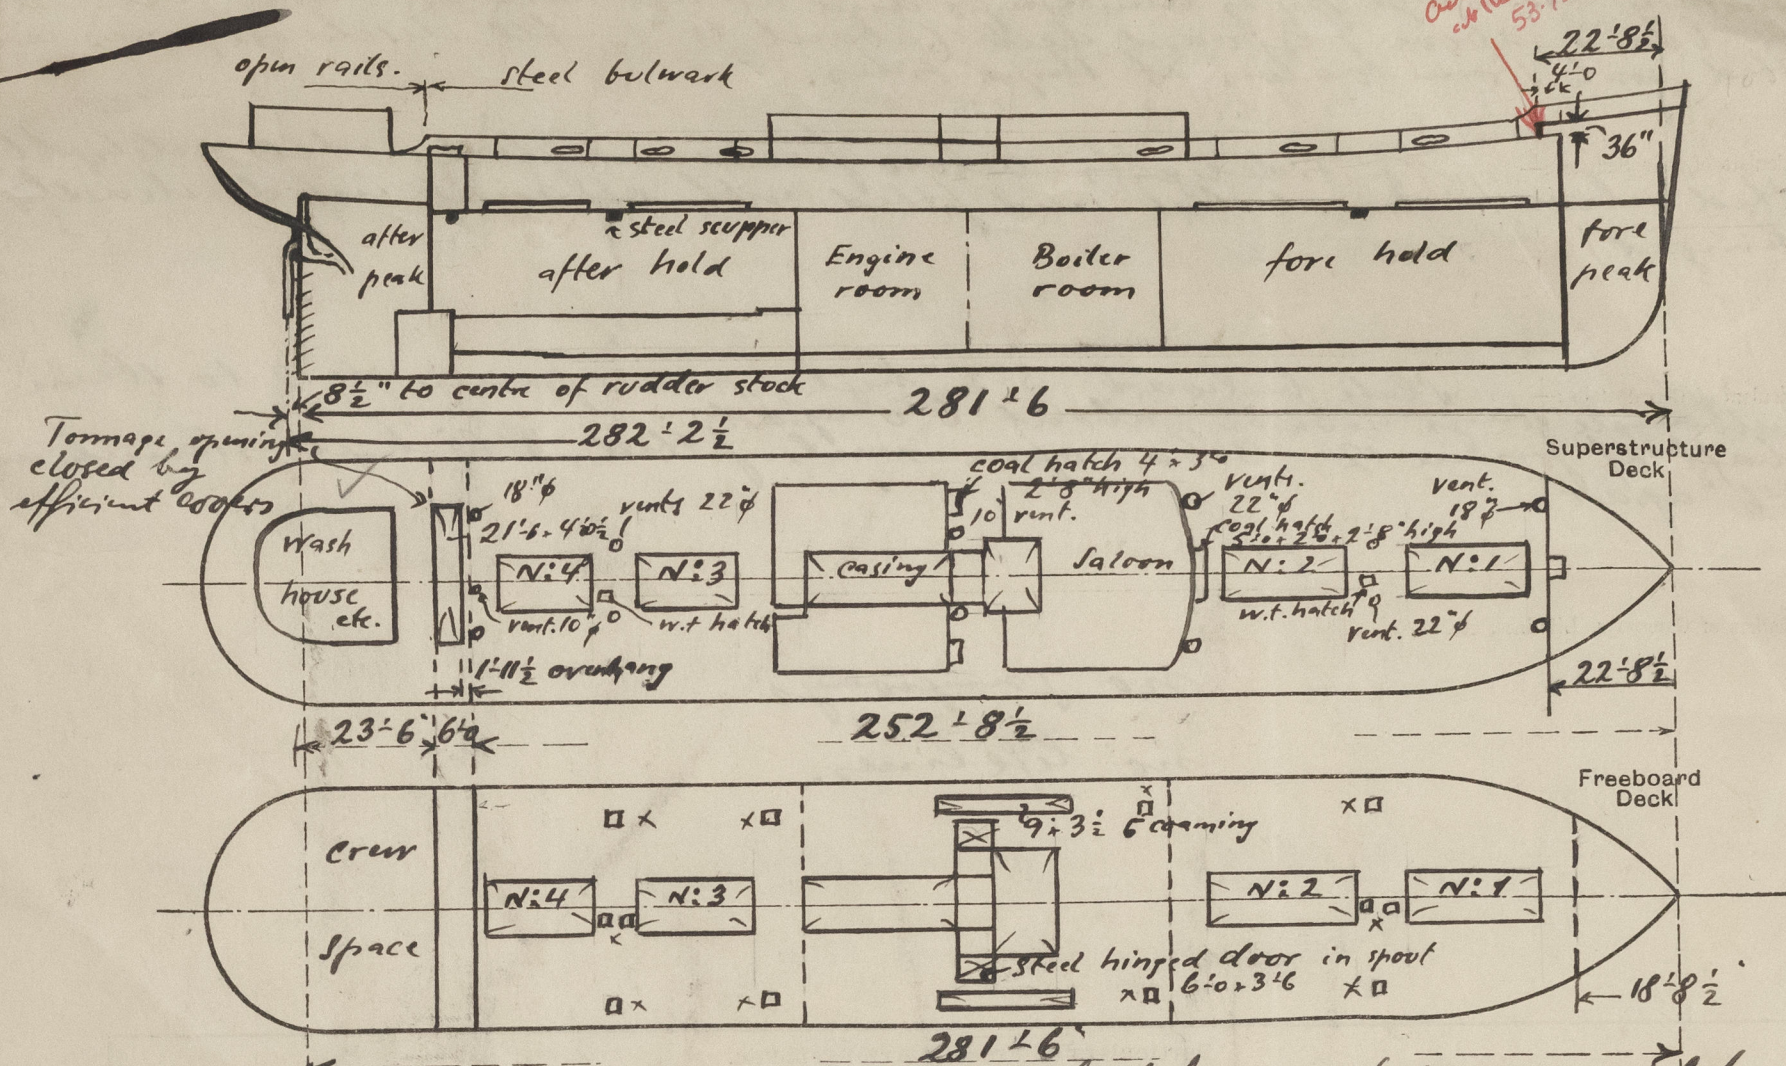 53
22'-8½
open rails.
steel bulwark
4'-0
36"
after
peak
steel scupper
after hold
Engine
room
Boiler
room
fore hold
fore
peak
8½" to centre of rudder stock
281'-6
282'-2½
Tonnage opening
closed by
efficient covers
Superstructure
Deck
coal hatch 4' × 3'
2'-8" high
18"ø
vents 22"ø
10"
vent.
vents.
22"ø
vent.
18"ø
21'-6 × 4'
coal hatch
5'-0 × 2'-0 × 2'-8" high
Wash
house
etc.
N:4
N:3
casing
Saloon
N:2
N:1
vent. 10"ø
w.t hatch
w.t. hatch
vent. 22"ø
1'-11½ overhang
22'-8½
23'-6"
6'-0
252'-8½
Freeboard
Deck
9 × 3½
coaming
Crew
space
N:4
N:3
N:2
N:1
steel hinged door in spout
6'-0 × 3'-6
18'-8½
281'-6"